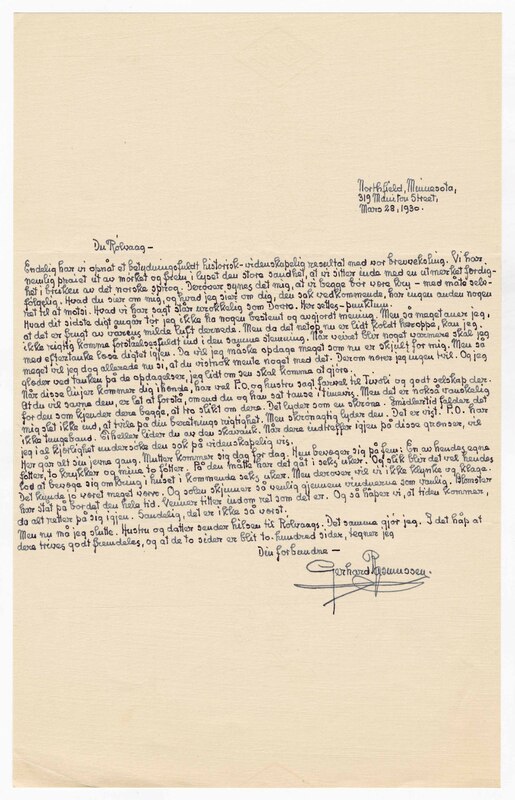 Northfield, Minnesota,
319 Manitou Street,
Mars 28, 1930.
Du Rölvaag —
Endelig har vi opnåt et betydningsfuldt historisk-videnskapelig resultat med vor brevveksling. Vi har
nemlig pravet ut av mörket og frem i lyset den store sandhet, at vi sitter inde med en utmerket færdig-
het i bruken av det norske sprog. Deröver synes det mig, at vi begge bör være kry — med måte selv-
fölgelig. Hvad du sier om mig, og hvad jeg sier om dig, den sak vedkommende, har ingen anden noget
ret til at motsi. Hvad vi har sagt står urokkelig som Dovre. Her settes — punktum.
Hvad dit sidste digt angår tör jeg ikke ha nogen bestemt og avgjort mening. Men så meget aner jeg,
at det er frugt av vårens milde luft dernede. Men da det netop nu er litt koldt heroppe, kan jeg
ikke rigtig komme forståelsesfuldt ind i den samme stemning. Når veiret blir noget varmere skal jeg
med eftertanke læse digtet igjen. Da vil jeg måske opdage meget som nu er skjult for mig. Men så
meget vil jeg dog allerede nu si, at du visnok mente noget med det. Derom nærer jeg ingen tvil. Og jeg
gleder ved tanken på de opdagelser, jeg litt om sen skal komme at gjöre.
Når disse linjer kommer dig ihænde, har vel P.O. og hustru sagt farvel til Tivoli og godt selskap der.
At du vil savne den, er let at forstå, om end du og han sat tause i timevis. Men det er nokså vanskelig
for den som kjender dere begge, at tro slikt om dere. Det lyder som en skröne. Imidlertid falder det
mig slet ikke ind, at tvile på din beretnings rigtighet. Men skrönagtig lyder den. Det er vist. P.O. har
ikke tungebånd. Ei heller lider du av den skavank. Når dere indtræffer igjen på disse grönser, vil
jeg i al kjærlighet undersöke den sak på videnskapelig vis.
Her går alt sin jevne gang. Mutter kommer sig dag for dag. Hun bevæger sig på fem: En av hendes egne
fötter, to krykker og mine to fötter. På den måte har det gåt i seks uker. Og slik blir det vel hendes
lod at bevæge sig omkring i huset i kommende seks uker. Men derover vil vi ikke klynke og klage.
Det kunde jo været meget værre. Og solen skjinner så venlig gjennem vinduerne som vanlig. Blomster
har stat på bordet den hele tid. Venner titter indom ret som det er. Og så håper vi, at tider kommer,
da alt retter på sig igjen. Sandelig, det er ikke så værst.
Men nu må jeg slutte. Hustru og datter sender hilsen til Rölvaags. Det samme gjör jeg. I det håp at
dere trives godt fremdeles, og at de to sider er blit to-hundred sider, tegner jeg
Din forbundne —
Gerhard Rasmussen.